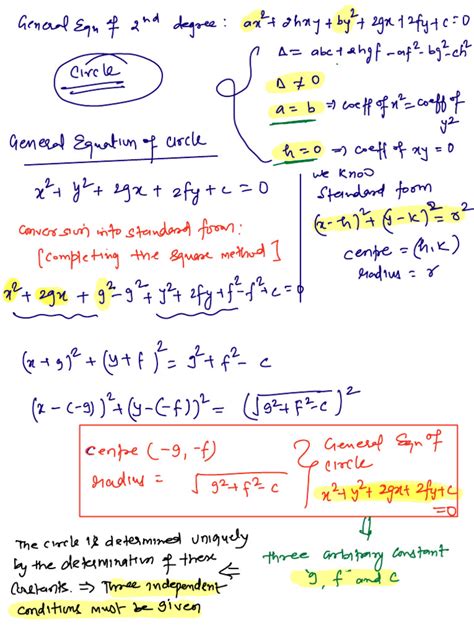 General Eqn of 2nd degree: ax²+2hxy+by²+2gx+2fy+c=0
Circle
Δ = abc+2hgf-af²-bg²-ch²
Δ ≠ 0
a = b ⇒ coeff of x² = coeff of y²
h=0 ⇒ coeff of xy = 0
General Equation of circle
x²+ y²+ 2gx + 2fy + c = 0
we know
Standard form
(x-h)²+(y-k)²= r²
centre = (h,k)
radius = r
conversion into standard form:
[completing the square method]
x²+2gx + g²-g²+ y²+2fy+f²-f²+c=0
(x+g)²+(y+f)²= g²+f²-c
(x-(-g))²+(y-(-f))²= (√g²+f²-c)²
centre (-g, -f)
radius = √g²+f²-c
General Eqn of
circle
x²+y²+2gx+2fy+c
=0
⇓
three arbitrary constant
"g, f" and c
The circle is determined uniquely
by the determination of these ⇐
constants. ⇒ Three independent
conditions must be given